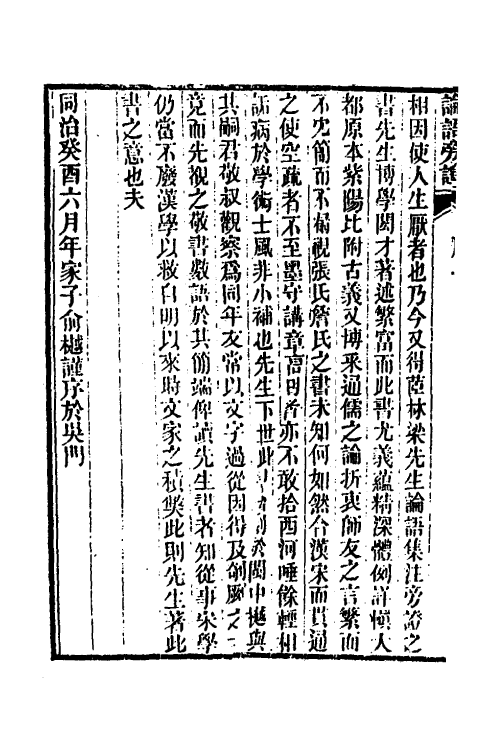 論語旁證
相因使人生厭者也乃今又得茝林梁先生論語集注旁證之
書先生博學閎才著述繁富而此書尤義蘊精深體例詳愼大
都原本紫陽比附古義又博采通儒之論折衷師友之言繁而
不冗簡而不漏視張氏詹氏之書未知何如然合漢宋而貫通
之使空疏者不至墨守講章高明者亦不敢拾西河唾餘輕相
詬病於學術士風非小補也先生下世此書始刻於閩中樾與
其嗣君敬叔觀察爲同年友常以文字過從因得及剞劂之
竟而先覩之敬書數語於其簡端俾讀先生書者知從事宋學
仍當不廢漢學以救自明以來時文家之積獘此則先生著此
書之意也夫
同治癸酉六月年家子俞樾謹序於吳門